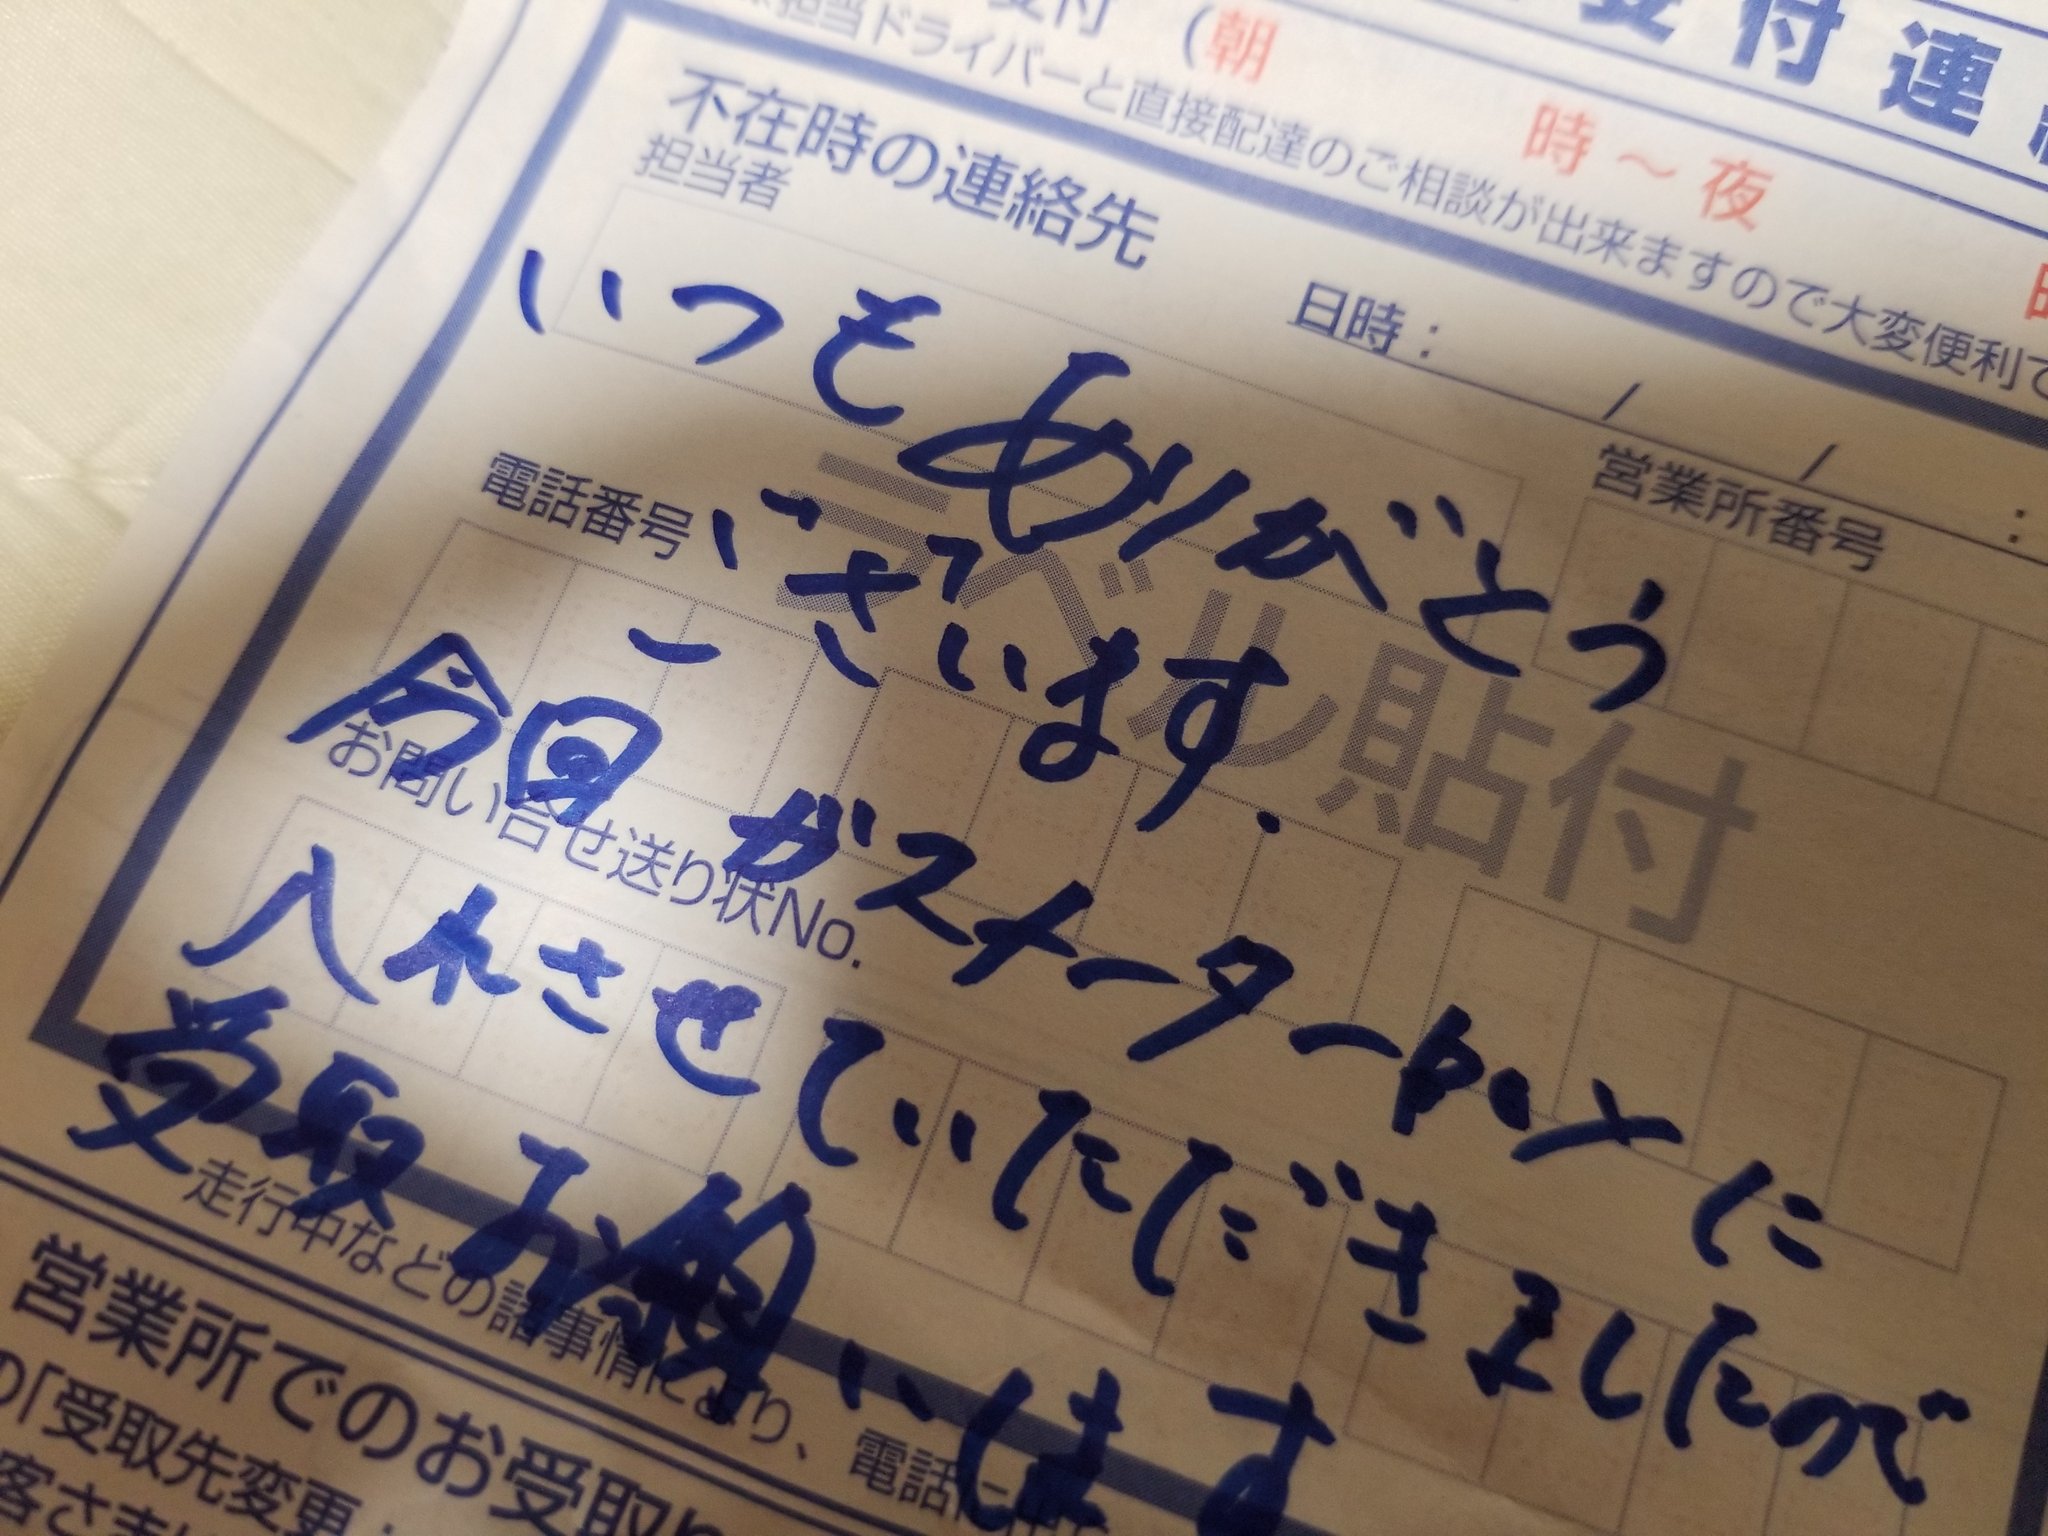 受付連
受付 (朝 時～夜
担当ドライバーと直接配達のご相談が出来ますので大変便利で
不在時の連絡先
担当者
日時： / / :
いつもありがとう
営業所番号
電話番号
ございます.
ラベル貼付
今回 ガスメーターBOXに
お問い合せ送り状No.
入れさせていただきましたので
受取お願いします
走行中などの諸事情により、電話に
営業所でのお受取り
の「受取先変更
客さま